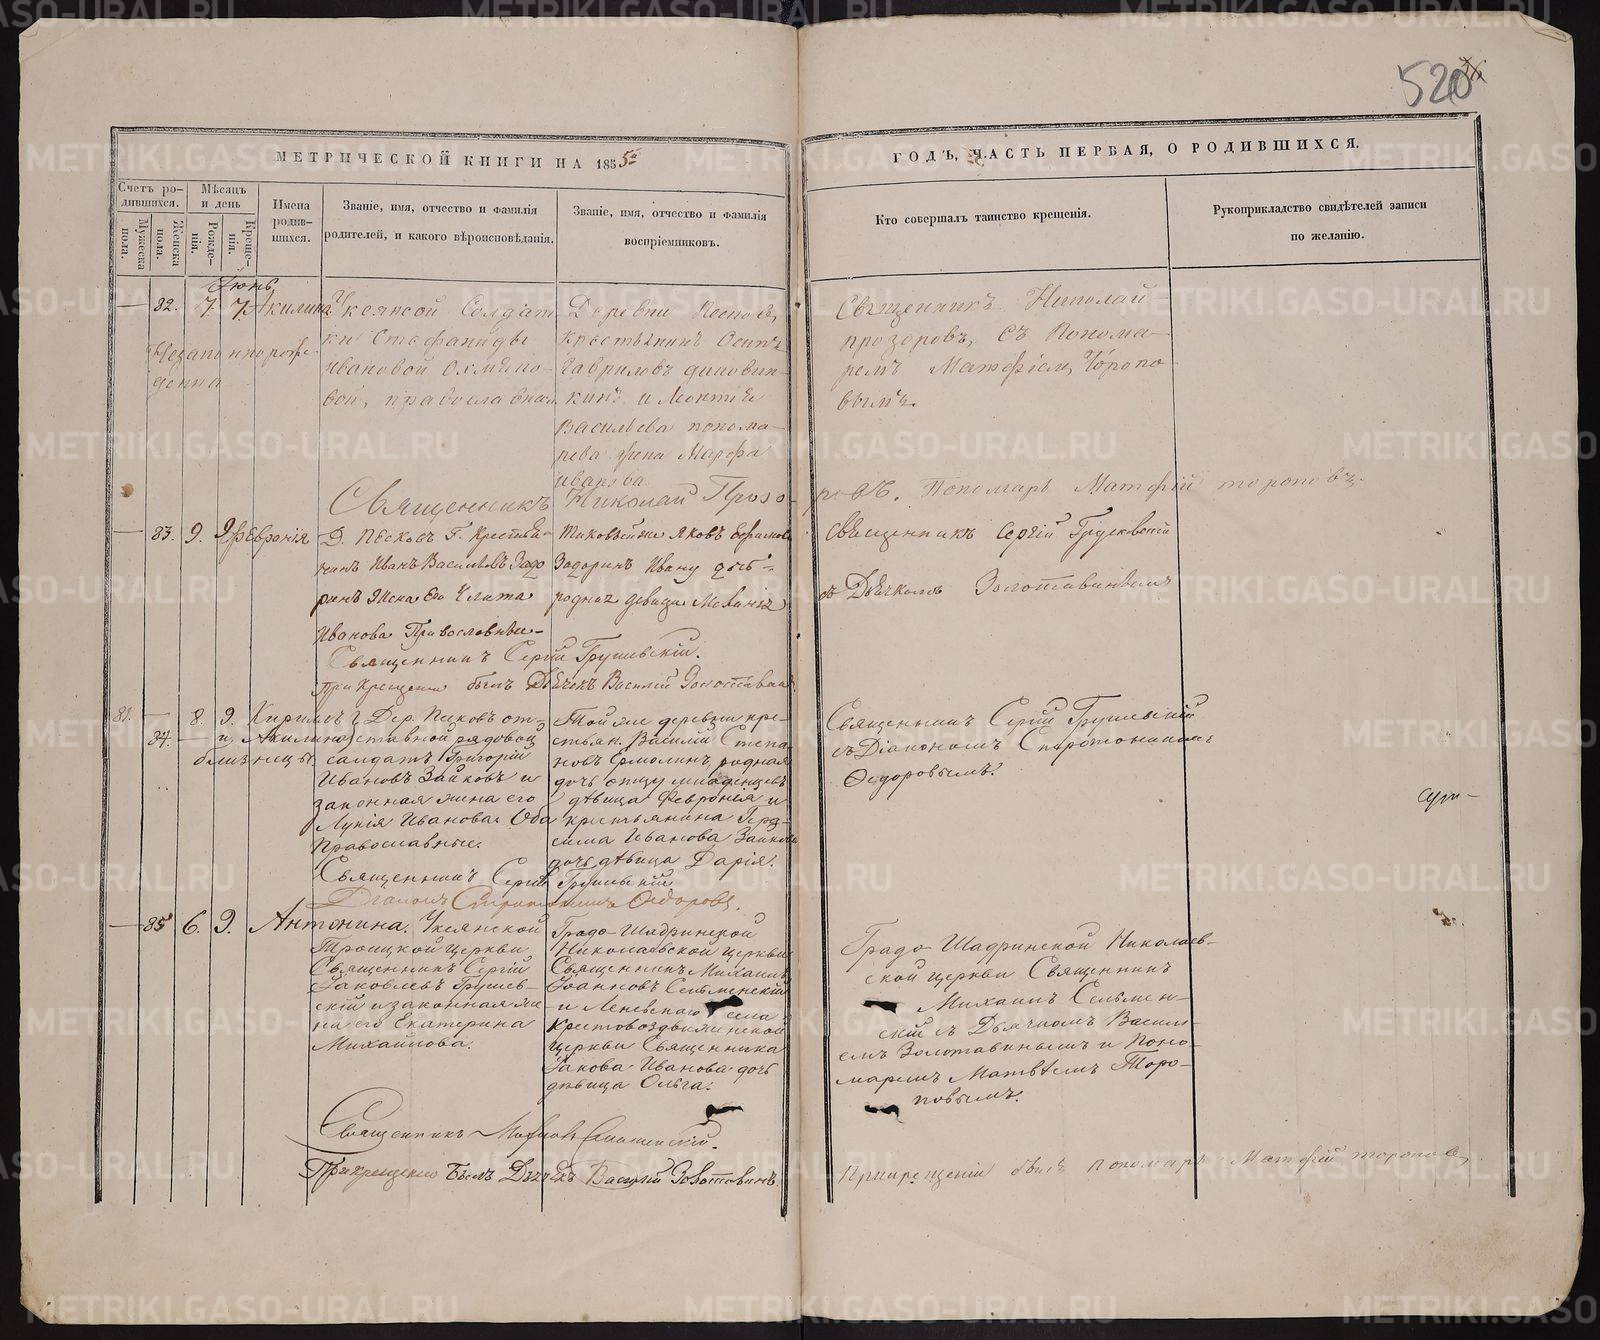 520
МЕТРИЧЕСКОЙ КНИГИ НА 1855
ГОДЪ, ЧАСТЬ ПЕРВАЯ, О РОДИВШИХСЯ.
Счетъ родившихся.
Мужеска пола.
Женска пола.
Мѣсяцъ и день
Рожденія.
Крещенія.
Имена родившихся.
Званіе, имя, отчество и фамилія родителей, и какого вѣроисповѣданія.
Званіе, имя, отчество и фамилія воспріемниковъ.
Кто совершалъ таинство крещенія.
Рукоприкладство свидѣтелей записи по желанію.
Іюнь
— 82. 7. 7. Акилина
Незаконнорожденна
Уксянской Солдатки Стефаниды
Ивановой
вой, православная
Деревни
Крестьянинъ Осипъ
Гавриловъ
кинъ и
Васильева пономарева жена Марфа
Иванова
Священникъ Николай
прозоровъ, съ Пономаремъ Матфіем Тороповымъ.
Священникъ Николай Прозоровъ. Пономарь Матфій тороповъ.
— 83. 9. 9 Февронія
Д. Пѣсковъ Г. Крестьянинъ Иванъ Васильевъ Задоринъ Жена Его Улита
Иванова Православныи
Таковыйже Яковъ Ефимовъ
Задоринъ Ивану дочь
родная девица Меланія
Священникъ Сергій Грушевскій
съ Дьячкомъ Золотавинымъ
Священникъ Сергій Грушевскій.
При крещеніи былъ Дьячекъ Василій Золотавинъ
81. — 8. 9. Кирилъ
— 84. и Акилина
близнецы
Дер. Песковъ отставной рядовой
солдатъ Григорій
Ивановъ Зайковъ и
законная жена его
Лукія Иванова Оба
православные.
Той же деревни крестьян. Василій Степановъ Ермолинъ, родная
дочь отцу младенцевъ
дѣвица Февронія и
крестьянина Герасима Иванова Зайкова
дочь дѣвица Дарія.
Священникъ Сергій Грушевскій
съ Діакономъ Спиридономъ
Ѳедоровымъ.
Священникъ Сергій Грушевскій
Діаконъ Ѳедоровъ.
— 85 6. 9. Антонина.
Уксянской
Троицкой Церкви
Священникъ Сергій
Іаковлевъ Грушевскій и законная жена его Екатерина
Михаилова.
Градо-Шадринской
Николаевской Церкви
Священникъ Михаилъ
Іоанновъ Сельменскій
и села
Крестовоздвиженской
Церкви Священника
Іакова Иванова дочь
дѣвица Ольга.
Градо-Шадринской Николаевской церкви Священникъ
Михаилъ Сельменскій съ Дьячкомъ Васильемъ Золотавинымъ и Пономаремъ Матвѣемъ Тороповымъ.
Священникъ
При крещеніи Былъ Дьячекъ Василій Золотавинъ
При крещеніи былъ пономарь Матфій тороповъ
METRIKI.GASO-URAL.RU